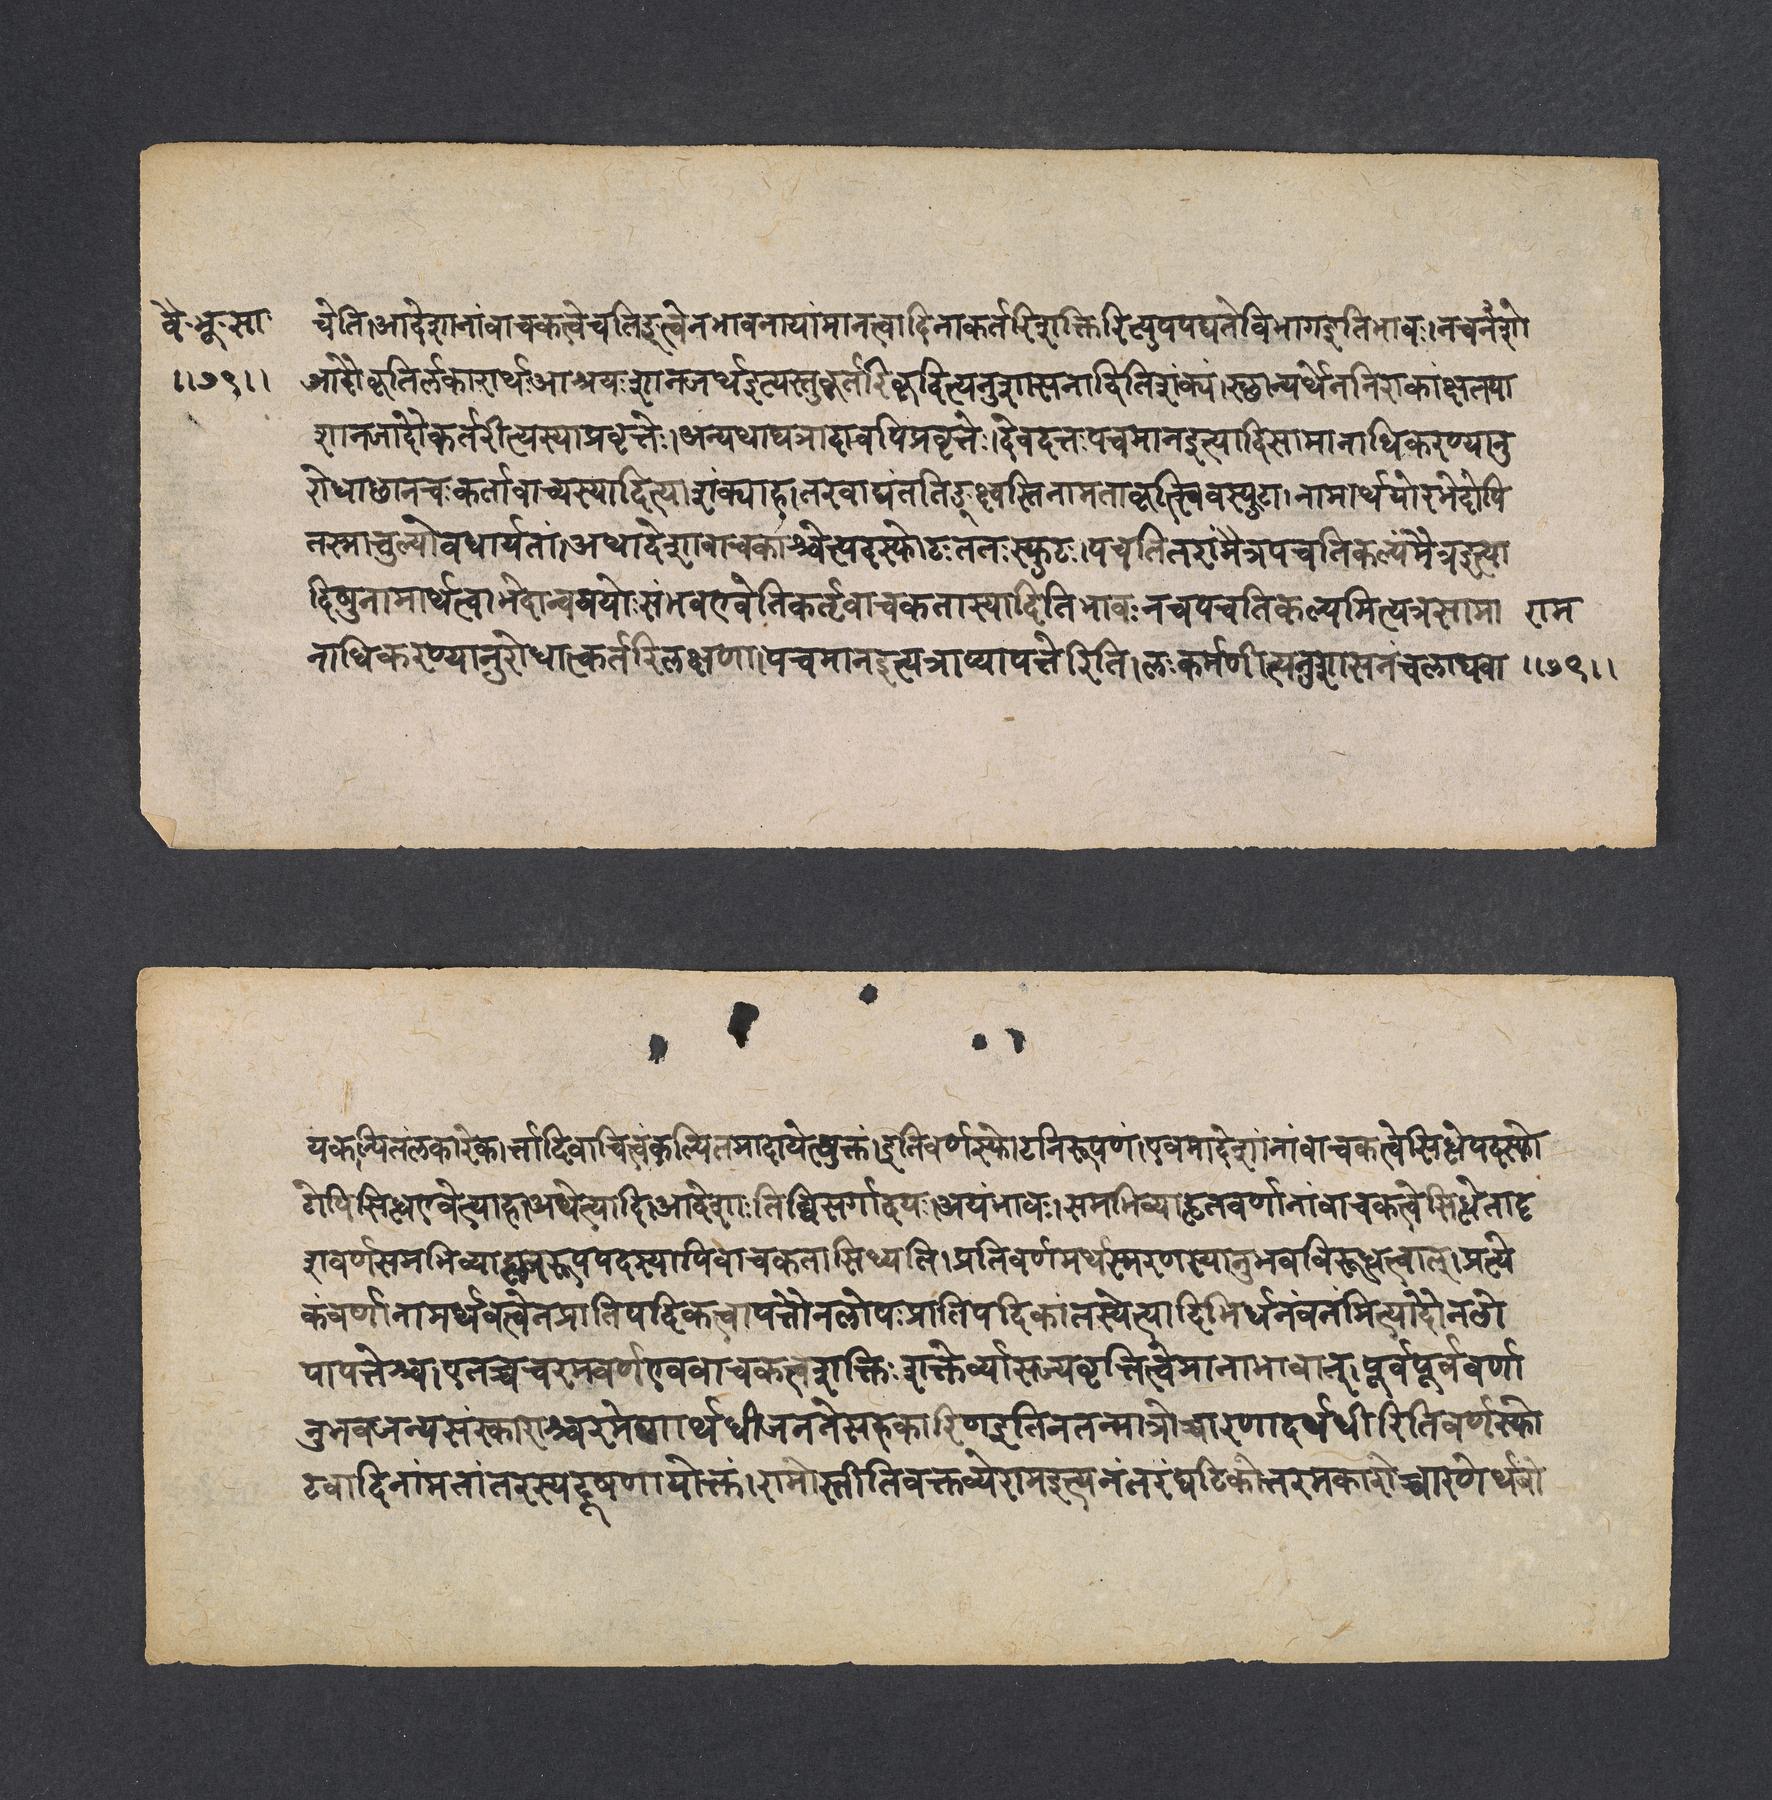 वै॰भू॰सा॰
॥७९॥
चेति।आदेशानांवाचकत्वेचतिङ्त्वेनभावनायांमानत्वादिनाकर्तरिशक्तिरित्युपपद्यतेविभागइतिभावः।नचनंशो
आदौकृतिर्लकारार्थःआश्रयःशानजर्थइत्यस्तुकर्तरिकृदित्यनुशासनादितिशंक्यं।स्छान्यर्थेननिराकांक्षतया
शानजादौकर्तरीत्यस्याप्रवृत्तेः।अन्यथाघञादावपिप्रवृत्तेः।देवदत्तःपचमानइत्यादिसामानाधिकरण्यानु
रोधाछानचःकर्तावाच्यस्यादित्याशंक्याह।तरवाद्यंततिङ्क्ष्वस्तिनामताकृत्स्विवस्फुटा।नामार्थयोरभेदोपि
तस्मात्तुल्योवधार्यतां।अथादेशावाचकाश्चेत्पदस्फोटःततःस्फुटः।पचतितरांमैत्रपचतिकल्पंमैत्रइत्या
दिषुनामार्थत्वाभेदान्वययोःसंभवएवेतिकर्तृवाचकतास्यादितिभावःनचपचतिकल्पमित्यत्रसामा
नाधिकरण्यानुरोधात्कर्तरिलक्षणा।पचमानइत्यत्राप्यापत्तेरिति।लःकर्मणीत्यनुशासनंचलाघवा
राम
॥७९॥
यकल्पितलकारेकर्त्तादिवाचित्वंकल्पितमादायेत्युक्तं।इतिवर्णस्फोटनिरूपणं।एवमादेशानांवाचकत्वेसिद्धेपदस्फो
टोपिसिद्धएवेत्याह।अथेत्यादि।आदेशाःतिब्विसर्गादयः।अयंभावः।समभिव्याहृतवर्णानांवाचकत्वेसिद्धेतादृ
शवर्णसमभिव्याहाररूपपदस्यापिवाचकतासिध्यति।प्रतिवर्णमर्थस्मरणस्यानुभवविरूद्धत्वात्।प्रत्ये
कंवर्णानामर्थवत्वेनप्रातिपदिकत्वापत्तौनलोपःप्रातिपदिकांतस्येत्यादिभिर्धनंवनमित्यादौनलो
पापत्तेश्च।एतच्चचरमवर्णएववाचकत्वशक्तिःशक्तेर्व्यासज्यवृत्तित्वेमानाभावात्।पूर्वपूर्ववर्णा
नुभवजन्यसंस्काराश्चरमेणार्थधीजननेसहकारिणइतिनतन्मात्रोच्चारणादर्थधीरितिवर्णस्फो
टवादिनांमतांतरस्यदूषणायोक्तं।रामोस्तीतिवक्तव्येरामइत्यनंतरंघटिकोत्तरमकारोच्चारणेर्थबो